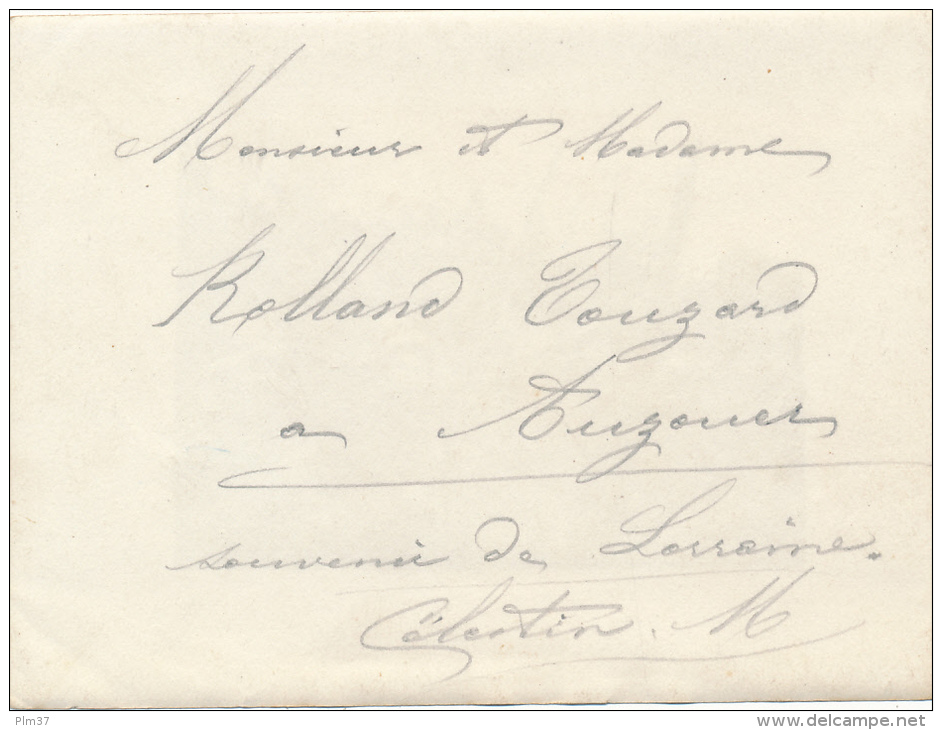 Monsieur et Madame
Rolland Touzard
a Auzouer
souvenir de Lorraine.
Célestin. M
Plm37
www.delcampe.net